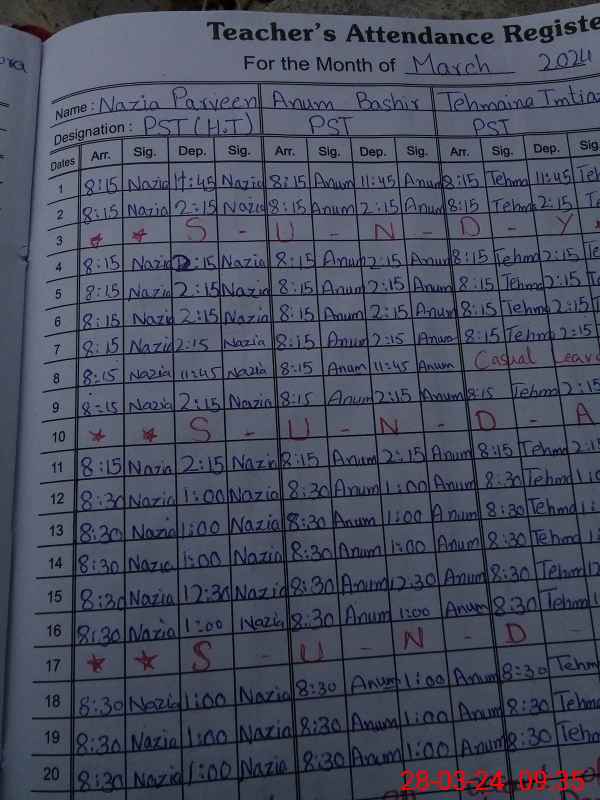 Teacher's Attendance Registe
For the Month of March 2024
Name: Nazia Parveen Anum Bashir Tehmaina Imtia
Designation: PST (H.T) PST PST
Dates Arr. Sig. Dep. Sig. Arr. Sig. Dep. Sig. Arr. Sig. Dep. S
1 8:15 Nazia 11:45 Nazia 8:15 Anum 11:45 Anum 8:15 Tehma 11:45 Teh
2 8:15 Nazia 2:15 Nazia 8:15 Anum 2:15 Anum 8:15 Tehma 2:15 T
3 * * S - U - N - D - Y
4 8:15 Nazia 2:15 Nazia 8:15 Anum 2:15 Anum 8:15 Tehma 2:15 Te
5 8:15 Nazia 2:15 Nazia 8:15 Anum 2:15 Anum 8:15 Tehma 2:15 T
6 8:15 Nazia 2:15 Nazia 8:15 Anum 2:15 Anum 8:15 Tehma 2:15 T
7 8:15 Nazia 2:15 Nazia 8:15 Anum 2:15 Anum 8:15 Tehma 2:15
8 8:15 Nazia 11:45 Nazia 8:15 Anum 11:45 Anum Casual Leav
9 8:15 Nazia 2:15 Nazia 8:15 Anum 2:15 Anum 8:15 Tehma 2:15
10 * * S - U - N - D - A
11 8:15 Nazia 2:15 Nazia 8:15 Anum 2:15 Anum 8:15 Tehma 2:15
12 8:30 Nazia 1:00 Nazia 8:30 Anum 1:00 Anum 8:30 Tehma 1:0
13 8:30 Nazia 1:00 Nazia 8:30 Anum 1:00 Anum 8:30 Tehma 1:
14 8:30 Nazia 1:00 Nazia 8:30 Anum 1:00 Anum 8:30 Tehma 1:
15 8:30 Nazia 12:30 Nazia 8:30 Anum 12:30 Anum 8:30 Tehma 12
16 8:30 Nazia 1:00 Nazia 8:30 Anum 1:00 Anum 8:30 Tehma 1
17 * * S - U - N - D -
18 8:30 Nazia 1:00 Nazia 8:30 Anum 1:00 Anum 8:30 Tehm
19 8:30 Nazia 1:00 Nazia 8:30 Anum 1:00 Anum 8:30 Tehma
20 8:30 Nazia 1:00 Nazia 8:30 Anum 1:00 Anum 8:30 Teh
28-03-24 09:35